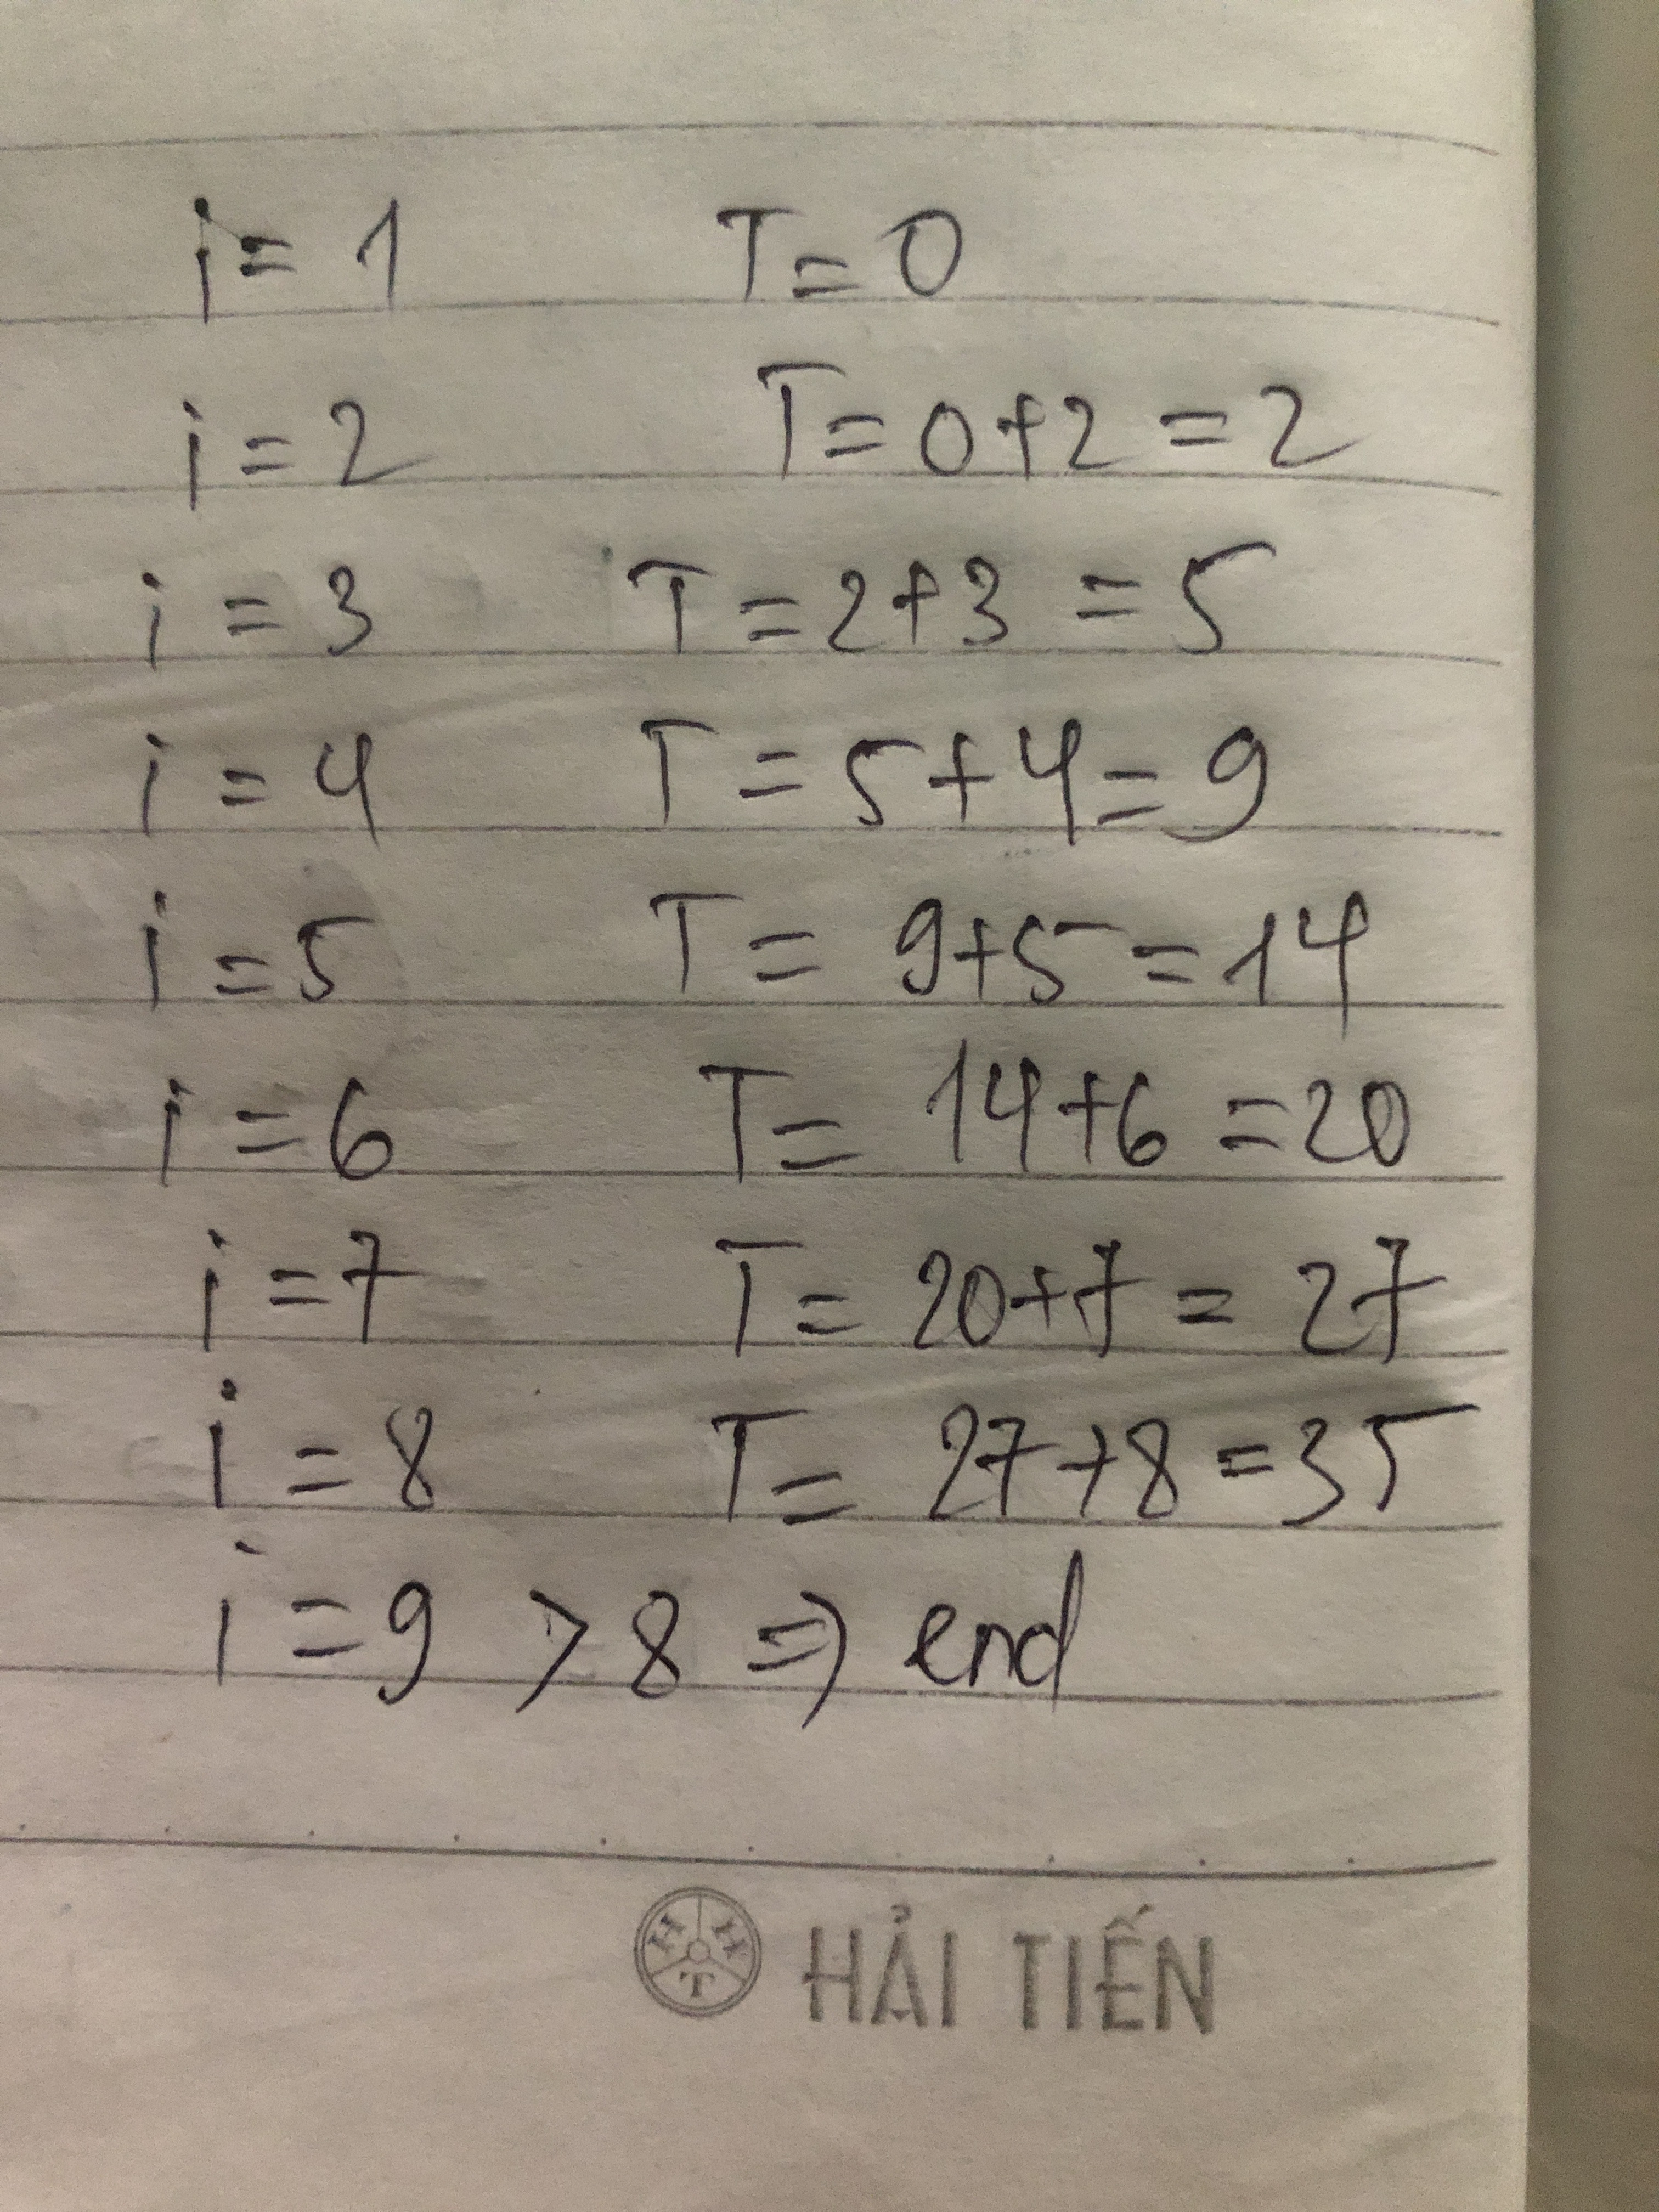 i = 1 T = 0
i = 2 T = 0+2 = 2
i = 3 T = 2+3 = 5
i = 4 T = 5+4 = 9
i = 5 T = 9+5 = 14
i = 6 T = 14+6 = 20
i = 7 T = 20+7 = 27
i = 8 T = 27+8 = 35
i = 9 > 8 => end
HHT HẢI TIẾN